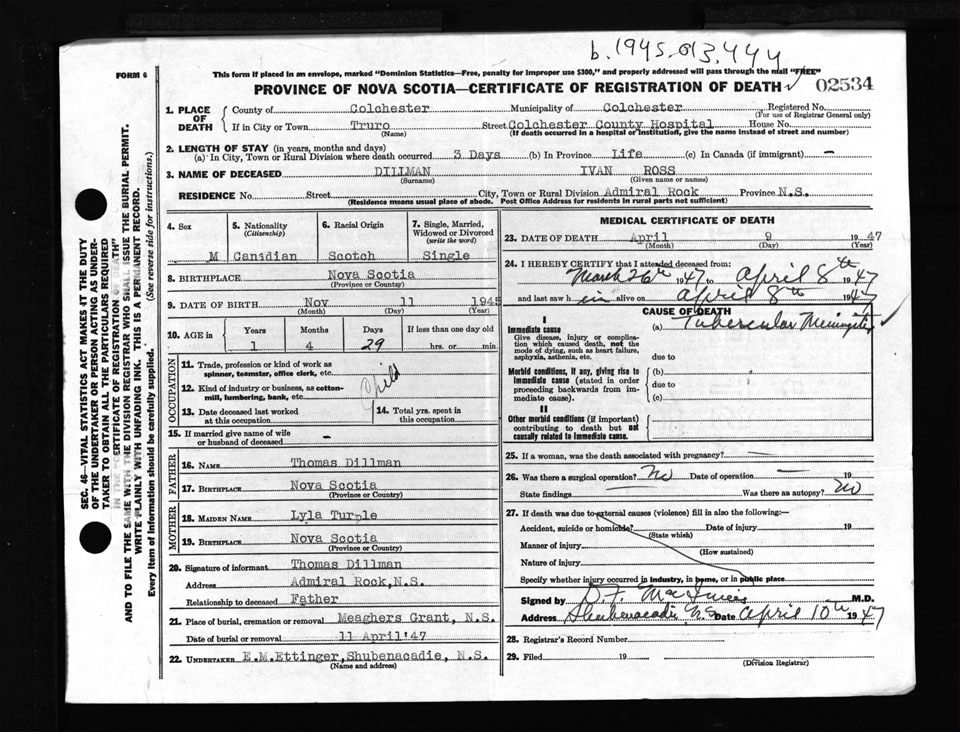 b. 1945. 813,444
FORM 6
This form if placed in an envelope, marked "Dominion Statistics—Free, penalty for improper use $300," and properly addressed will pass through the mail "FREE"
PROVINCE OF NOVA SCOTIA—CERTIFICATE OF REGISTRATION OF DEATH 02534
1. PLACE OF DEATH
County of Colchester Municipality of Colchester Registered No.
(For use of Registrar General only)
If in City or Town Truro Street Colchester County Hospital House No.
(Name) (If death occurred in a hospital or institution, give the name instead of street and number)
2. LENGTH OF STAY (in years, months and days)
(a) In City, Town or Rural Division where death occurred 3 Days (b) In Province Life (c) In Canada (if immigrant) —
3. NAME OF DECEASED DILLMAN IVAN ROSS
(Surname) (Given name or names)
RESIDENCE No. Street City, Town or Rural Division Admiral Rock Province N.S.
(Residence means usual place of abode. Post Office Address for residents in rural parts not sufficient)
4. Sex 5. Nationality (Citizenship) 6. Racial Origin 7. Single, Married, Widowed or Divorced (write the word)
M Canidian Scotch Single
8. BIRTHPLACE Nova Scotia
(Province or Country)
9. DATE OF BIRTH Nov 11 1945
(Month) (Day) (Year)
10. AGE in Years Months Days If less than one day old
1 4 29 hrs. or min.
OCCUPATION
11. Trade, profession or kind of work as spinner, teamster, office clerk, etc.
12. Kind of industry or business, as cotton-mill, lumbering, bank, etc.
Child
13. Date deceased last worked at this occupation
14. Total yrs. spent in this occupation
15. If married give name of wife or husband of deceased -
FATHER
16. NAME Thomas Dillman
17. BIRTHPLACE Nova Scotia
(Province or Country)
MOTHER
18. MAIDEN NAME Lyla Turple
19. BIRTHPLACE Nova Scotia
(Province or Country)
20. Signature of informant Thomas Dillman
Address Admiral Rock, N.S.
Relationship to deceased Father
21. Place of burial, cremation or removal Meaghers Grant, N.S.
Date of burial or removal 11 April '47
22. UNDERTAKER E.M.Ettinger, Shubenacadie, N.S.
(Name and address)
MEDICAL CERTIFICATE OF DEATH
23. DATE OF DEATH April 9 1947
(Month) (Day) (Year)
24. I HEREBY CERTIFY that I attended deceased from:
March 26th 1947 to April 8th 1947
and last saw h im alive on April 8th 1947
CAUSE OF DEATH
I
Immediate cause (a) Tubercular Meningitis
Give disease, injury or complication which caused death, not the mode of dying, such as heart failure, asphyxia, asthenia, etc.
due to
Morbid conditions, if any, giving rise to immediate cause (stated in order proceeding backwards from immediate cause).
(b)
due to
(c)
II
Other morbid conditions (if important) contributing to death but not causally related to immediate cause.
25. If a woman, was the death associated with pregnancy? —
26. Was there a surgical operation? No Date of operation — 19
State findings — Was there an autopsy? No
27. If death was due to external causes (violence) fill in also the following:—
Accident, suicide or homicide? Date of injury 19
(State which)
Manner of injury
(How sustained)
Nature of injury
Specify whether injury occurred in industry, in home, or in public place
Signed by D. F. MacInnes M.D.
Address Shubenacadie N.S. Date April 10th 1947
28. Registrar's Record Number
29. Filed 19
(Division Registrar)
SEC. 46—VITAL STATISTICS ACT MAKES IT THE DUTY
OF THE UNDERTAKER OR PERSON ACTING AS UNDER-
TAKER TO OBTAIN ALL THE PARTICULARS REQUIRED
IN THE "CERTIFICATE OF REGISTRATION OF DEATH"
AND TO FILE THE SAME WITH THE DIVISION REGISTRAR WHO SHALL ISSUE THE BURIAL PERMIT.
WRITE PLAINLY WITH UNFADING INK. THIS IS A PERMANENT RECORD.
Every item of information should be carefully supplied. (See reverse side for instructions.)